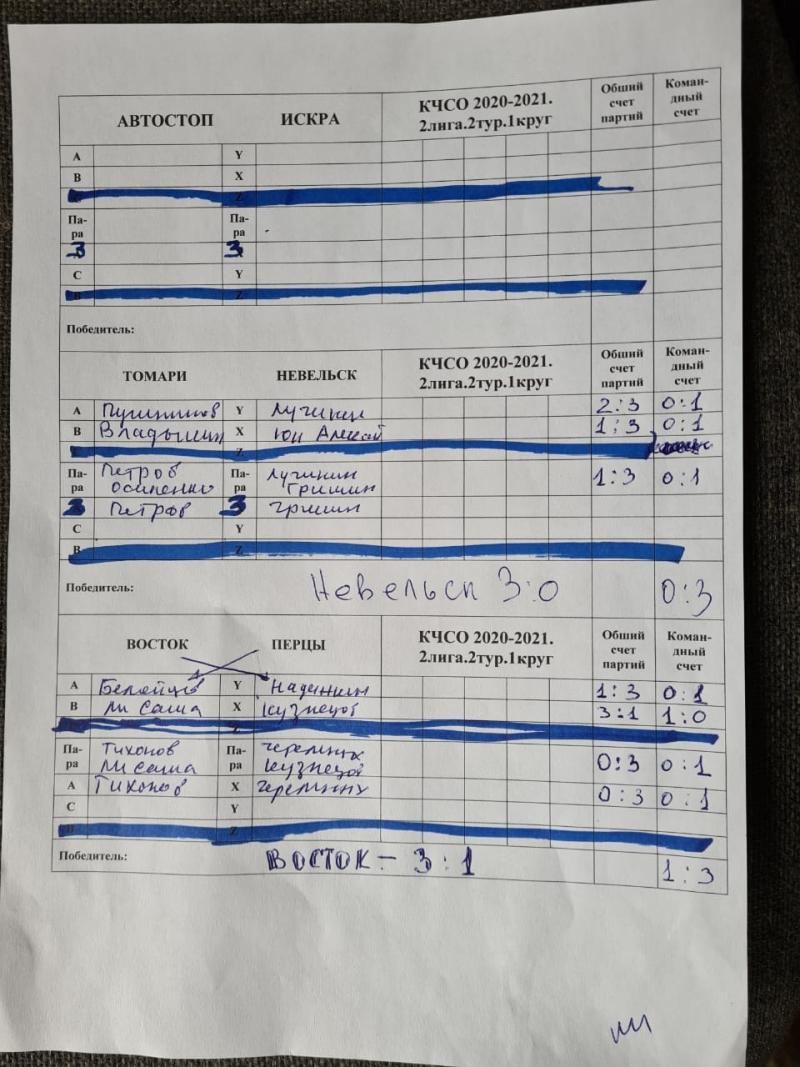 АВТОСТОП ИСКРА КЧСО 2020-2021. 2лига.2тур.1круг Общий счет партий Коман-дный счет
A Y
B X
Z
Па-ра Па-ра
3 3
C Y
B Z
Победитель:
ТОМАРИ НЕВЕЛЬСК КЧСО 2020-2021. 2лига.2тур.1круг Общий счет партий Коман-дный счет
A Y Лучинин 2:3 0:1
B Владышин X Юн Алексей 1:3 0:1
Z
Па-ра Петров Па-ра Лучинин 1:3 0:1
Осипенко Гришин
3 Петров 3 Гришин
C Y
B Z
Победитель: Невельск 3:0 0:3
ВОСТОК ПЕРЦЫ КЧСО 2020-2021. 2лига.2тур.1круг Общий счет партий Коман-дный счет
A Y 1:3 0:1
B Ли Саша X Кузнецов 3:1 1:0
Па-ра Тихонов Па-ра Черемных 0:3 0:1
Ли Саша Кузнецов
A Тихонов X Черемных 0:3 0:1
C Y
B Z
Победитель: ВОСТОК - 3:1 1:3